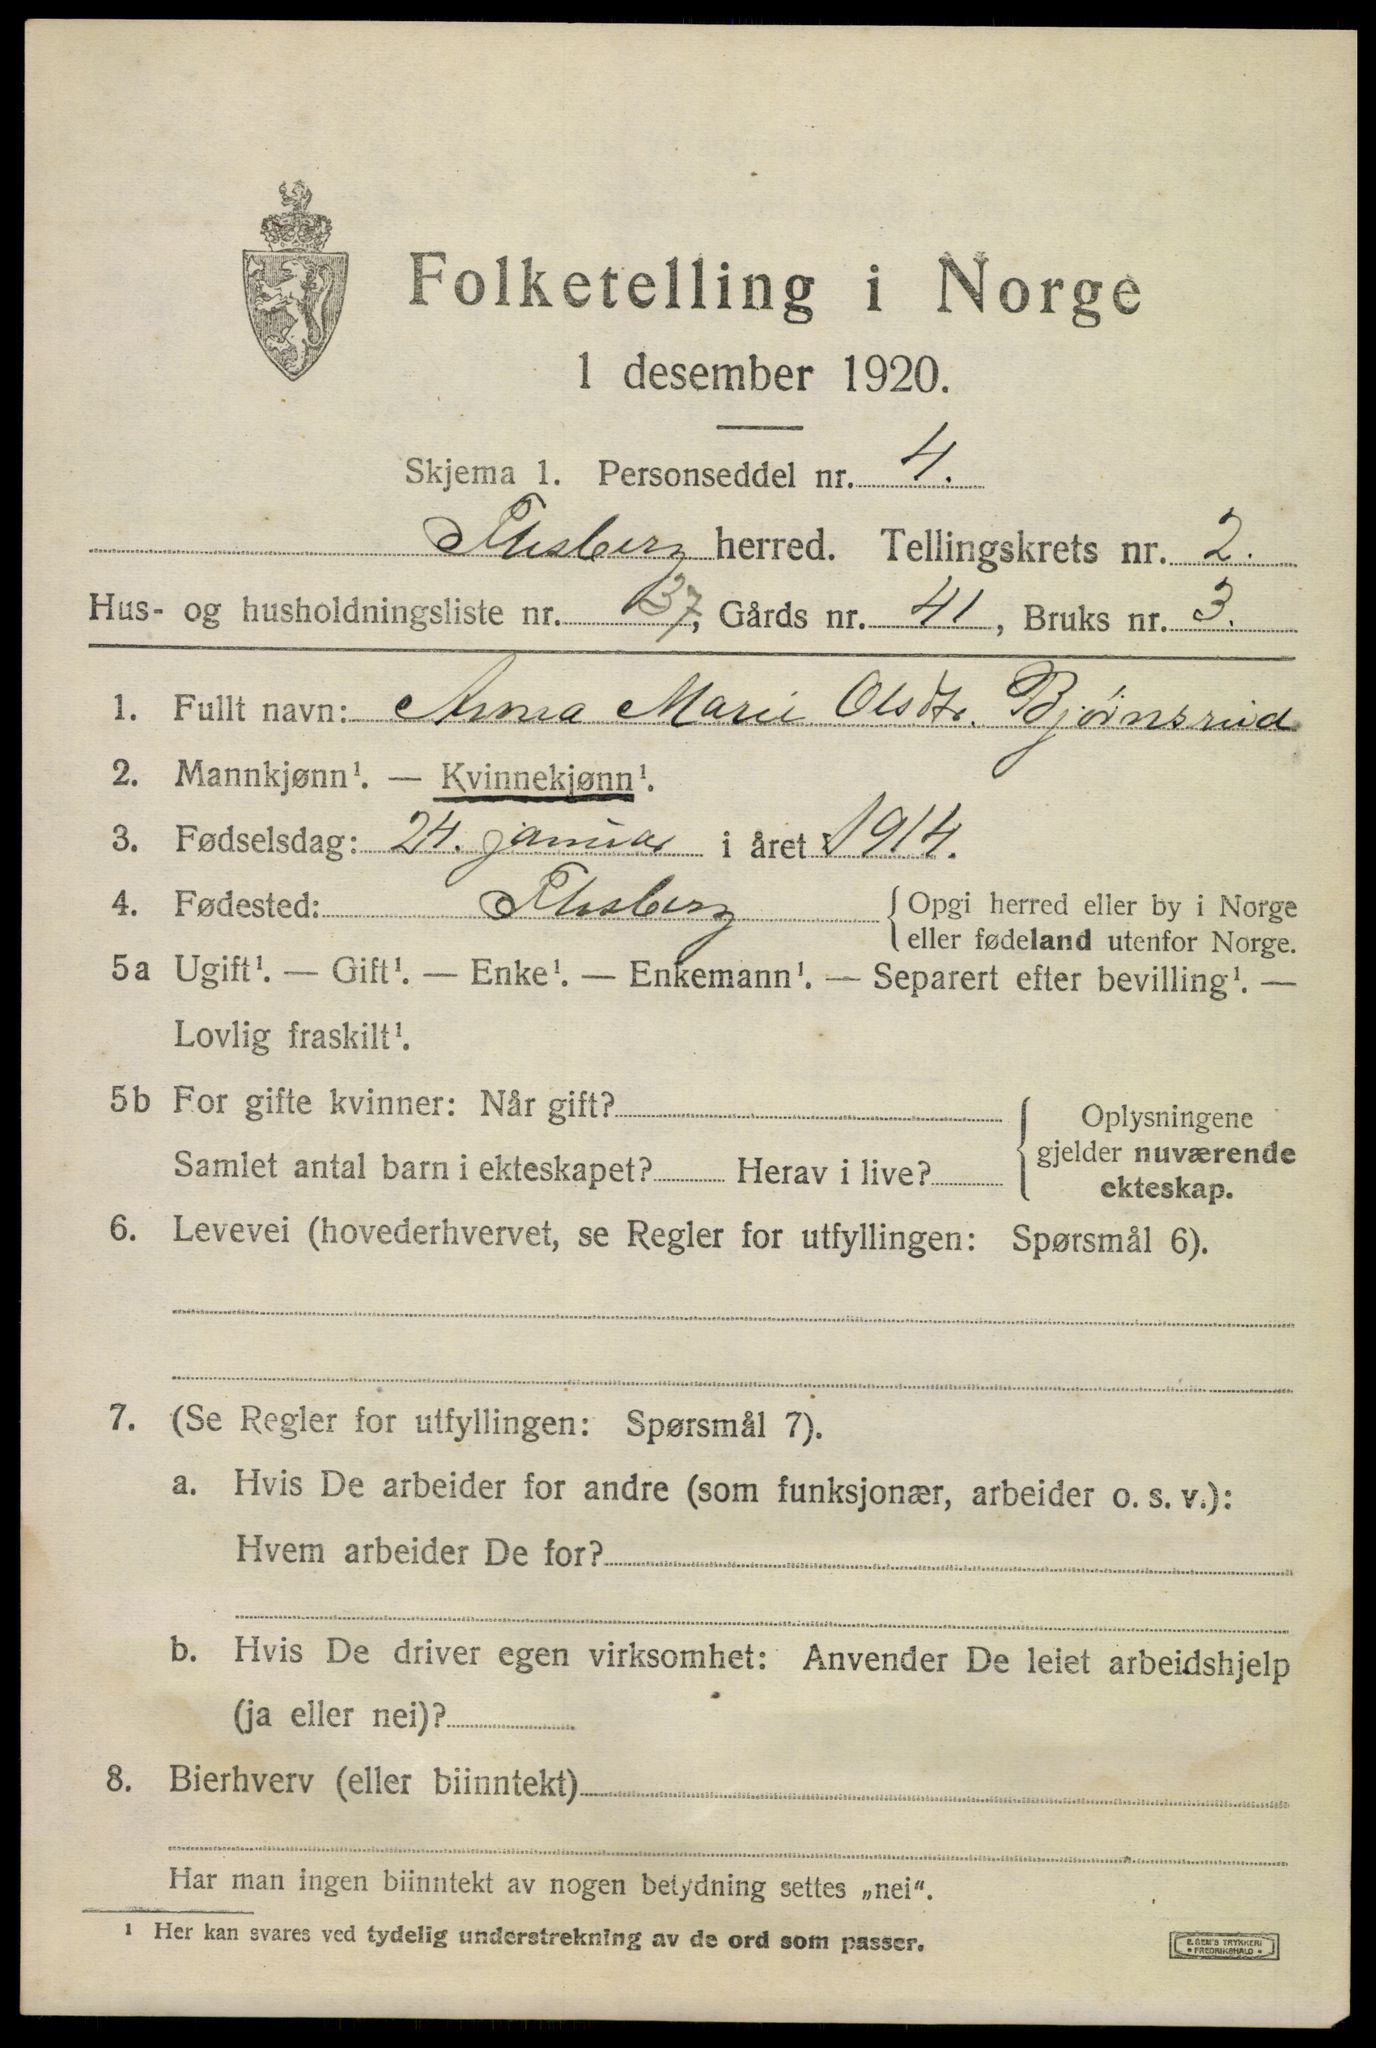 Folketelling i Norge
1 desember 1920.
Skjema 1. Personseddel nr. 4.
Flesberg herred. Tellingskrets nr. 2.
Hus- og husholdningsliste nr. 37, Gårds nr. 41, Bruks nr. 3.
1. Fullt navn: Anna Marie Olsdtr. Bjørnsrud
2. Mannkjønn¹. — Kvinnekjønn¹.
3. Fødselsdag: 24. januar i året 1914.
4. Fødested: Flesberg {Opgi herred eller by i Norge
eller fødeland utenfor Norge.
5a Ugift¹. — Gift¹. — Enke¹. — Enkemann¹. — Separert efter bevilling¹. —
Lovlig fraskilt¹.
5b For gifte kvinner: Når gift?
Samlet antal barn i ekteskapet? Herav i live?
{Oplysningene
gjelder nuværende
ekteskap.
6. Levevei (hovederhvervet, se Regler for utfyllingen: Spørsmål 6).
7. (Se Regler for utfyllingen: Spørsmål 7).
a. Hvis De arbeider for andre (som funksjonær, arbeider o. s. v.):
Hvem arbeider De for?
b. Hvis De driver egen virksomhet: Anvender De leiet arbeidshjelp
(ja eller nei)?
8. Bierhverv (eller biinntekt)
Har man ingen biinntekt av nogen betydning settes „nei“.
¹ Her kan svares ved tydelig understrekning av de ord som passer.
E. SEM'S TRYKKERI
• FREDRIKSHALD •